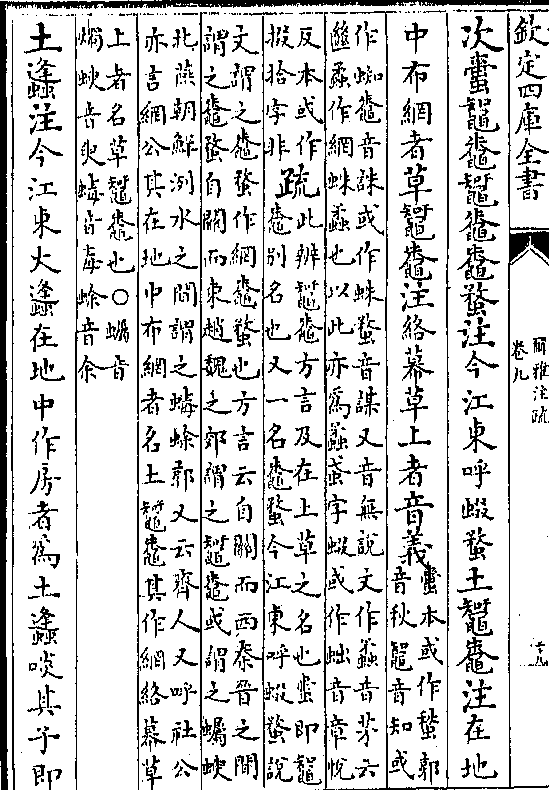 欽定四庫全書
爾雅注疏
卷九
次蟗鼅鼄鼅鼄鼄蝥注今江東呼蝃蝥土鼅鼄注在地
中布網者草鼅鼄注絡幕草上者音義蟗本或作蝵郭
音秋鼅音知或
作蜘鼄音誅或作蛛蝥音謀又音無說文作蟊音茅云
鼄蟊作網蛛蟊也以此亦為蟊蟊字蝃或作䖦音章悅
反本或作
掇拾字非疏此辨鼅鼄方言及在上草之名也蟗即鼅
鼄別名也又一名鼄蝥今江東呼蝃蝥說
文謂之鼄蝥作網鼄蝥也方言云自關而西秦晉之間
謂之鼄蝥自關而東趙魏之郊謂之鼅鼄或謂之蠾蝓
北燕朝鮮洌水之間謂之蝳蜍郭又云齊人又呼社公
亦言網公其在地中布網者名土鼅鼄其作網絡幕草
上者名草鼅鼄也○蠾音
燭蝓音臾蝳音毒蜍音余
土蠭注今江東大蠭在地中作房者為土蠭啖其子即